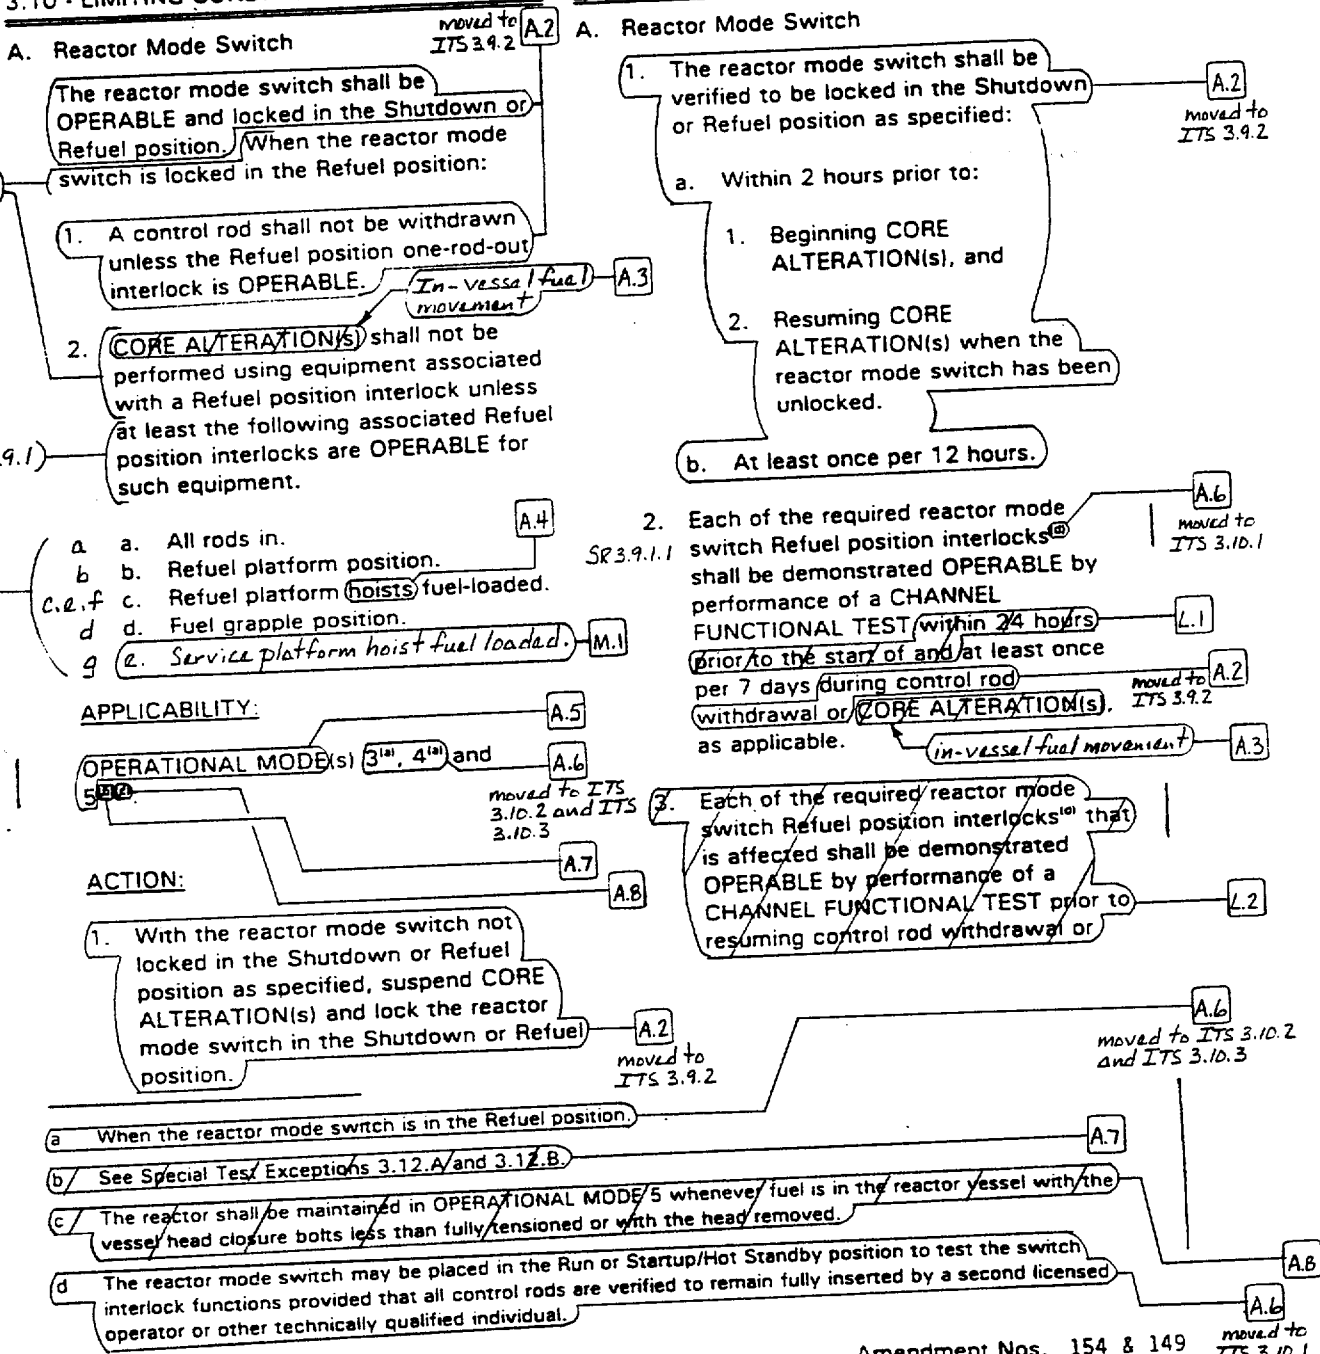 3.10 - LIMITING
moved to
ITS 3.9.2
A.2
A. Reactor Mode Switch
The reactor mode switch shall be
OPERABLE and locked in the Shutdown or
Refuel position. When the reactor mode
switch is locked in the Refuel position:
1. A control rod shall not be withdrawn
unless the Refuel position one-rod-out
interlock is OPERABLE.
In-vessel fuel
movement
A.3
2. CORE ALTERATION(s) shall not be
performed using equipment associated
with a Refuel position interlock unless
at least the following associated Refuel
9.1)
position interlocks are OPERABLE for
such equipment.
A.4
a a. All rods in.
b b. Refuel platform position.
c.e.f c. Refuel platform hoists fuel-loaded.
d d. Fuel grapple position.
g e. Service platform hoist fuel loaded.
M.1
APPLICABILITY:
A.5
OPERATIONAL MODE(s) 3(a), 4(a) and
A.6
moved to ITS
3.10.2 and ITS
3.10.3
5
A.7
A.8
ACTION:
1. With the reactor mode switch not
locked in the Shutdown or Refuel
position as specified, suspend CORE
ALTERATION(s) and lock the reactor
mode switch in the Shutdown or Refuel
position.
A.2
moved to
ITS 3.9.2
A. Reactor Mode Switch
1. The reactor mode switch shall be
verified to be locked in the Shutdown
or Refuel position as specified:
A.2
moved to
ITS 3.9.2
a. Within 2 hours prior to:
1. Beginning CORE
ALTERATION(s), and
2. Resuming CORE
ALTERATION(s) when the
reactor mode switch has been
unlocked.
b. At least once per 12 hours.
A.6
moved to
ITS 3.10.1
SR 3.9.1.1
2. Each of the required reactor mode
switch Refuel position interlocks(d)
shall be demonstrated OPERABLE by
performance of a CHANNEL
FUNCTIONAL TEST within 24 hours
L.1
prior to the start of and at least once
per 7 days during control rod
moved to
ITS 3.9.2
A.2
withdrawal or CORE ALTERATION(s),
as applicable.
in-vessel fuel movement
A.3
3. Each of the required reactor mode
switch Refuel position interlocks(d) that
is affected shall be demonstrated
OPERABLE by performance of a
CHANNEL FUNCTIONAL TEST prior to
resuming control rod withdrawal or
L.2
A.6
moved to ITS 3.10.2
and ITS 3.10.3
a When the reactor mode switch is in the Refuel position.
A.7
b See Special Test Exceptions 3.12.A and 3.12.B.
c The reactor shall be maintained in OPERATIONAL MODE 5 whenever fuel is in the reactor vessel with the
vessel head closure bolts less than fully tensioned or with the head removed.
A.8
d The reactor mode switch may be placed in the Run or Startup/Hot Standby position to test the switch
interlock functions provided that all control rods are verified to remain fully inserted by a second licensed
operator or other technically qualified individual.
A.6
moved to
ITS 3.10.1
Amendment Nos. 154 & 149